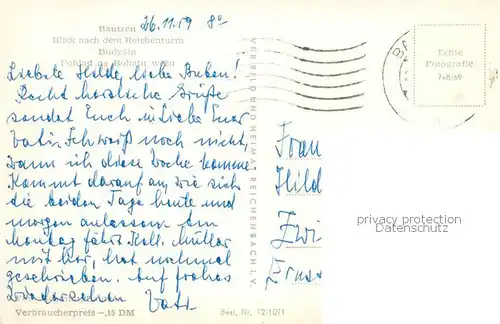 Bautzen
Blick nach dem Reichenturm
Budyšin
Pohlad na Bohatu wěžu
26.11.59 8⁰
Liebste Hilde, liebe Buben!
Recht herzliche Grüße
sendet Euch in Liebe Euer
Vati. Ich weiß noch nicht,
wann ich diese Woche komme.
Kommt darauf an, wie sich
die beiden Tage heute und
morgen anlassen. Am
Montag fährt Koll. Müller
mit hier, hat nochmal
geschrieben. Auf frohes
Wiedersehen Vati.
Verbraucherpreis -,15 DM
Best. Nr. 12/1011
VERB BILD UND HEIMAT REICHENBACH I. V.
Echte
Fotografie
748/59
Frau
Hild
Zwi
Ernst
privacy protection
Datenschutz